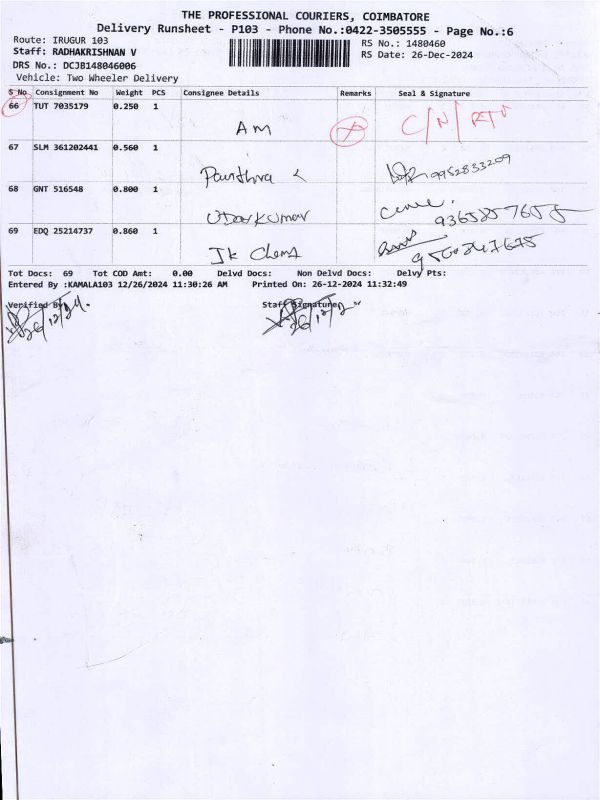 THE PROFESSIONAL COURIERS, COIMBATORE
Delivery Runsheet - P103 - Phone No.:0422-3505555 - Page No.:6
Route: IRUGUR 103
RS No.: 1480460
Staff: RADHAKRISHNAN V
RS Date: 26-Dec-2024
DRS No.: DCJB148046006
Vehicle: Two Wheeler Delivery
S No. Consignment No Weight PCS Consignee Details Remarks Seal & Signature
66 TUT 7035179 0.250 1
Am C/N/RTN
67 SLM 361202441 0.560 1
9952833209
68 GNT 516548 0.800 1
Udaykumar
69 EDQ 25214737 0.860 1
Jk Chem
Tot Docs: 69 Tot COD Amt: 0.00 Delvd Docs: Non Delvd Docs: Delvy Pts:
Entered By :KAMALA103 12/26/2024 11:30:26 AM Printed On: 26-12-2024 11:32:49
Verified By Staff Signature
26/12/24.